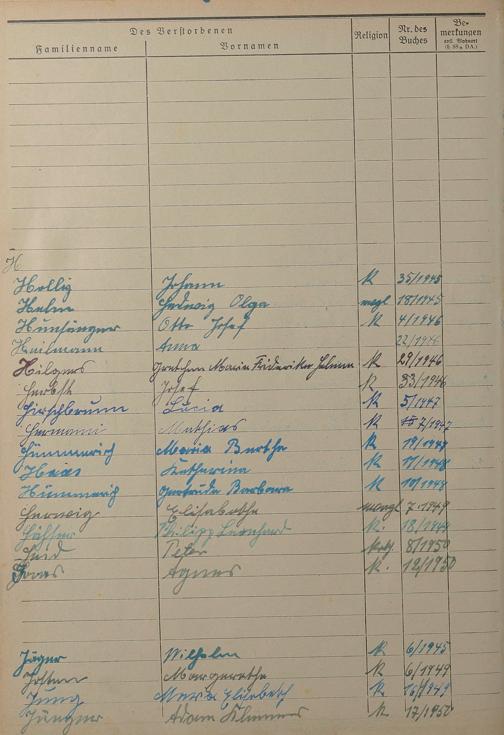 Des Verstorbenen
Familienname Vornamen Religion Nr. des Buches Bemerkungen
H
Hollig Johann K 35/1945
Helm Hedwig Olga evgl 18/1945
Hunsänger Otto Josef K 4/1946
Heilmann Anna 22/1946
Hilgers Gretchen Maria Friderike Helena K 29/1946
Herbst Josef K 33/1946
Hirschbrunn Lucia K 5/1947
Hermann Mathias K 7/1947
Hümmerich Maria Bertha K 19/1947
Heies Katharina K 11/1948
Hümmerich Gertrude Barbara K 10/1948
Herwig Elisabetha evagl 7 1949
Philipp Leonhard K. 18/1949
Peter kath. 8/1950
Agnes K. 12/1950
Jäger Wilhelm K 6/1945
Margaretha K 6/1949
Jung Maria Elisabeth K 16/1949
Jüngner Adam K 17/1950